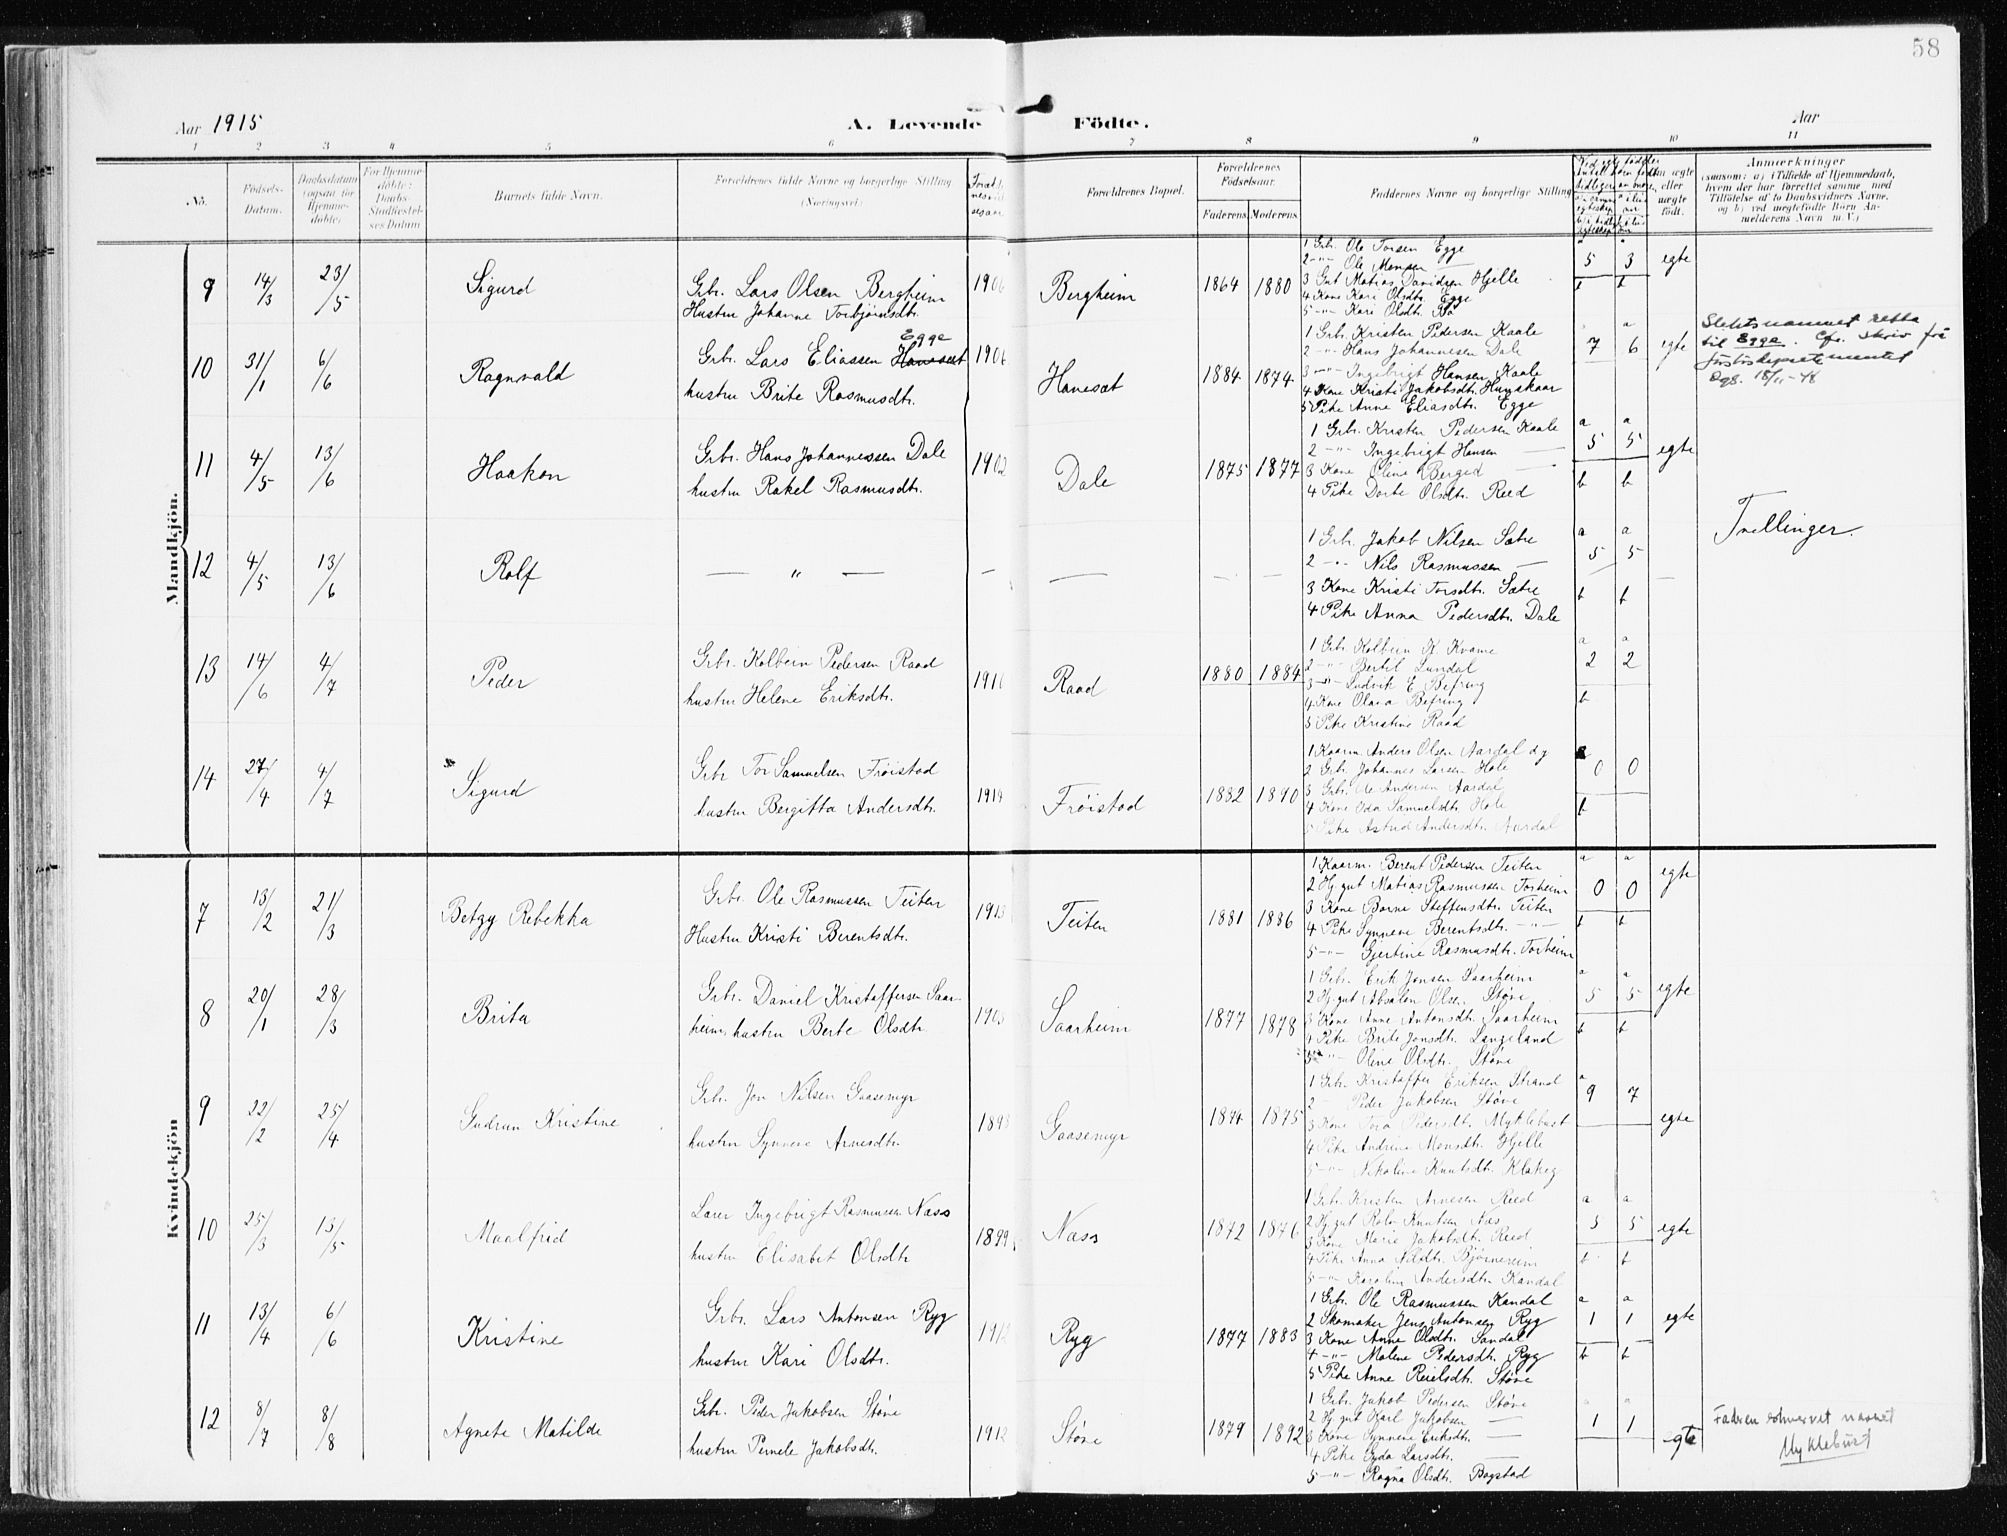 58
Aar 1915
A. Levende Födte.
Aar
1 2 3 4 5 6 7 8 9 10 11
No. Födsels-Datum. Daabsdatum (ogsaa for Hjemme-döbte) For Hjemme-döbte: Daabs-Stadfæstel-ses Datum Barnets fulde Navn. Forældrenes fulde Navne og borgerlige Stilling (Næringsvei) Forældrenes Bopæl. Forældrenes Födselsaar. Faderens. Moderens. Faddernes Navne og borgerlige Stilling Om ægte eller uægte födt. Anmærkninger
(saasom: a) i Tilfælde af Hjemmedaab,
hvem der har forrettet samme, med
Tilföielse af to Daabsvidners Navne,
og b) ved uægtefödte Börn An-
melderens Navn m. V.)
Mandkjön.
9 14/3 23/5 Sigurd Grbr. Lars Olsen Bergheim
Hustru Johanne Torbjörnsdtr. 1906 Bergheim 1864 1880
1 Grbr. Ole Torsen Egge
2 -"- Ole Monsen —
3 Gut Matias Davidsen Hjelle
4 Kone Kari Olsdtr. Egge
5 -"- Kari Olsdtr. Bö
5 3 egte
10 31/1 6/6 Ragnvald Grbr. Lars Eliassen Hanesæt Egge
hustru Brite Rasmusdtr. 1906 Hanesæt 1884 1874
1 Grbr. Kristen Pedersen Kaale
2 -"- Hans Johannesen Dale
3 -"- Ingebrigt Hansen Kaale
4 Kone Kristi Jakobsdtr. Hunskaar
5 Pike Anne Eliasdtr. Egge
7 6 egte
Slektsnamnet retta
til Egge. Cfr. skriv frå
justisdepartementet
Dgs. 18/11-48
11 4/5 13/6 Haakon Grbr. Hans Johannessen Dale
hustru Rakel Rasmusdtr. 1902 Dale 1875 1877
1 Grbr. Kristen Pedersen Kaale
2 -"- Ingebrigt Hansen —
3 Kone Oline Berged —
4 Pike Dorte Olsdtr. Reed
a a 5 5 b b egte
12 4/5 13/6 Rolf — " —
1 Grbr. Jakob Nilsen Sætre
2 -"- Nils Rasmussen —
3 Kone Kristi Torsdtr. Sætre
4 Pike Anna Pedersdtr. Dale
a a 5 5 b b
Tvillinger.
13 14/6 4/7 Peder Grbr. Kolbein Pedersen Raad
hustru Helene Eriksdtr. Raad 1880 1884
1 Grbr. Kolbein K. Kvame
2 -"- Bertil Lundal
3 -"- Ludvik E. Befring
4 Kone Olava Befring
5 Pike Kristine Raad
a a 2 2 b
14 27/4 4/7 Sigurd Grbr Tor Samuelsen Fröistad
hustru Bergitta Andersdtr. 1914 Fröistad 1882 1890
1 Kaarm. Anders Olsen Aardal
2 Grbr. Johannes Larsen Hole
3 Grbr. Ole Andersen Aardal
4 Kone Ida Samuelsdtr Hole
5 Pike Astrid Andersdtr. Aardal
0 0 b
Kvindekjön
7 13/2 21/3 Betzy Rebekka Grbr. Ole Rasmussen Teiten
Hustru Kristi Berentsdtr. 1913 Teiten 1881 1886
1 Kaarm. Berent Pedersen Teiten
2 Hj. gut Matias Rasmussen Torheim
3 Kone Borne Steffensdtr. Teiten
4 Pike Synneve Berentsdtr. -"-
5 -"- Gjertine Rasmusdtr. Torheim
a a 0 0 b b egte
8 20/1 28/3 Brita Grbr. Daniel Kristoffersen Saar-
heim, hustru Berte Olsdtr. Saarheim 1877 1878
1 Grbr. Erik Jonsen Saarheim
2 Hj. gut Absalon Olsen Støve
3 Kone Anne Antonsdtr. Saarheim
4 Pike Brite Jonsdtr. Langeland
5 -"- Oline Olsdtr. Støve
a a 5 5 b b egte
9 22/2 25/4 Gudrun Kristine Grbr. Jon Nilsen Gaasemyr
hustru Synneve Arnesdtr. 1898 Gaasemyr 1874 1875
1 Grbr. Kristoffer Eriksen Strand
2 — Peder Jakobsen Støve
3 Kone Tora Pedersdtr. Myklebust
4 Pike Andrine Monsdtr. Hjelle
5 -"- Nikoline Knutsdtr. Klakeg
a 9 7 egte
10 25/3 13/5 Maalfrid Lærer Ingebrigt Rasmussen Næss
hustru Elisabet Olsdtr 1899 Næss 1872 1876
1 Grbr. Kristen Arnesen Reed
2 Hj. gut Rolv Knutsen Næs
3 Kone Marie Jakobsdtr. Reed
4 Pike Anna Nilsdtr. Bjørnereim
5 -"- Karoline Andersdtr. Kandal
a a 5 5 b b egte
11 13/4 6/6 Kristine Grbr. Lars Antonsen Ryg
hustru Kari Olsdtr. 1912 Ryg 1877 1883
1 Grbr. Ole Rasmussen Kandal
2 Skomaker Jens Antonsen Ryg
3 Kone Anne Olsdtr. Sandal
4 -"- Malene Pedersdtr. Ryg
5 Pike Anne Reielsdtr. Støve
a a 1 1 b b egte
12 8/7 8/8 Agnete Matilde Grbr. Peder Jakobsen Støve
hustru Pernele Jakobsdtr. 1912 Støve 1879 1892
1 Grbr. Jakob Pedersen Støve
2 Hj. gut Karl Jakobsen —
3 Kone Synneve Eriksdtr. —
4 Pike Gyda Larsdtr. —
5 -"- Ragna Olsdtr. Bogstad
1 1 egte
Faderen ervervet navnet
Myklebust